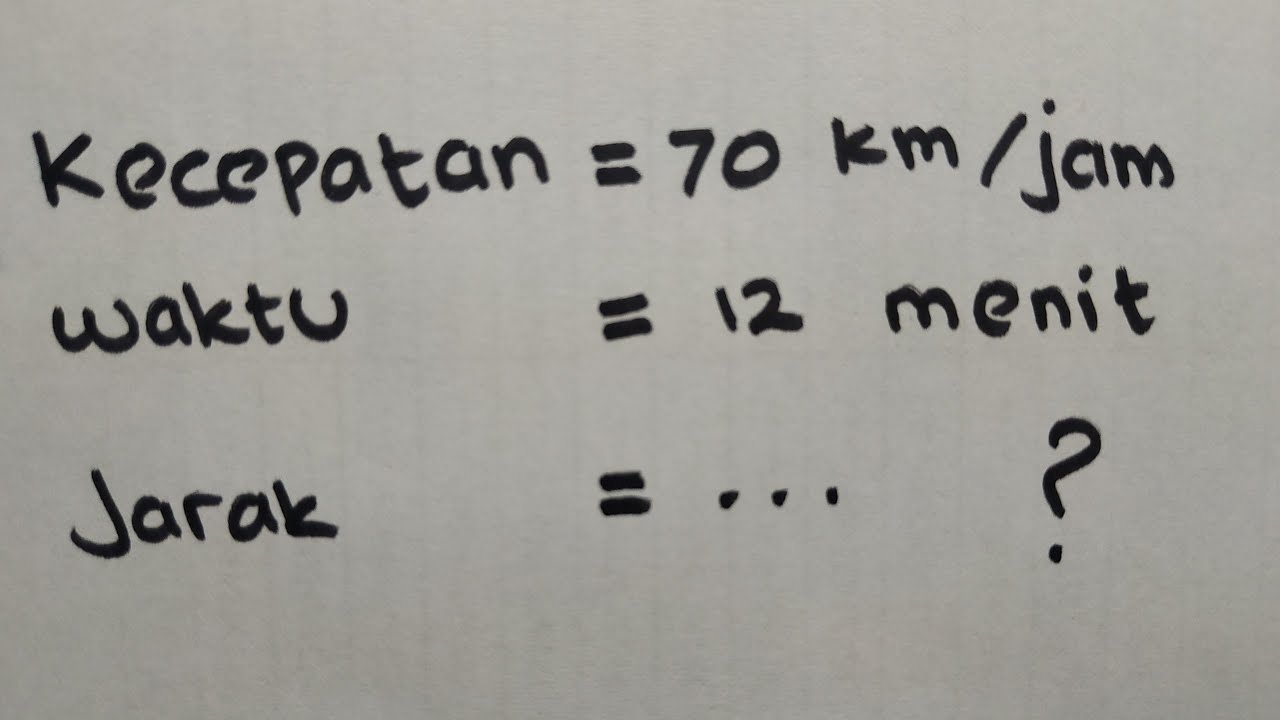 Kecepatan = 70 km/jam
waktu = 12 menit
Jarak = ... ?